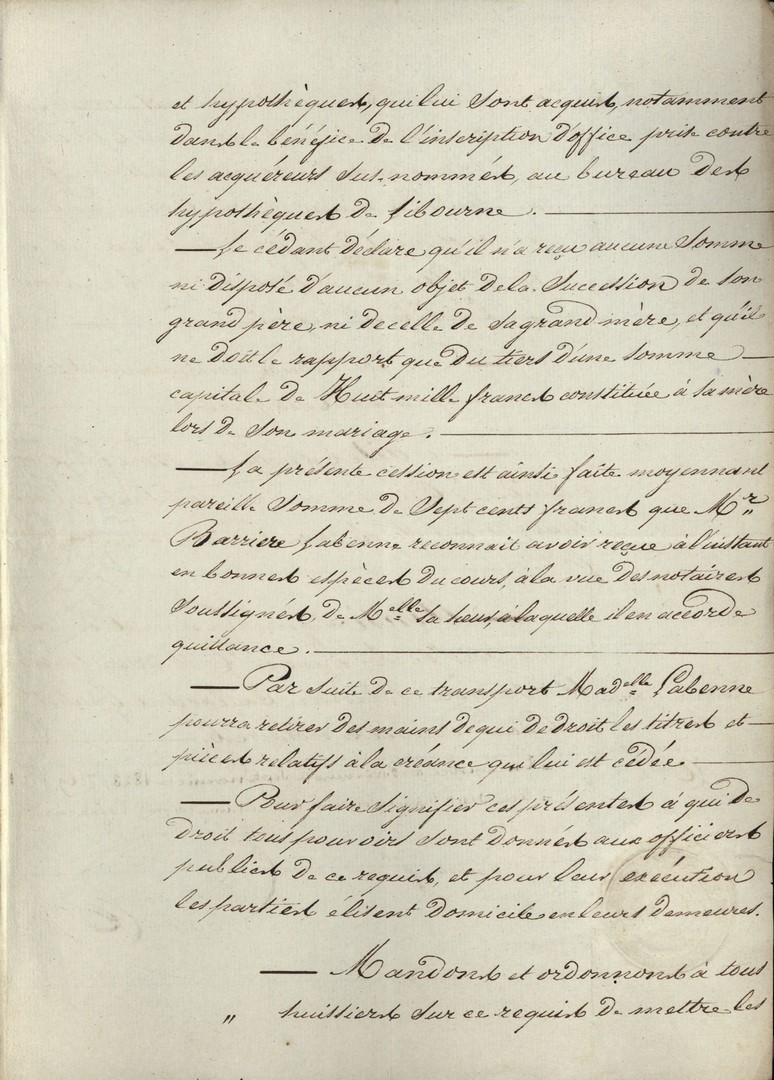 et hypothèques, qui lui sont acquis, notamment
dans le bénéfice de l'inscription d'office prise contre
les acquéreurs sus-nommés, au bureau des
hypothèques de Libourne.
— Le cédant déclare qu'il n'a reçu aucune somme
ni disposé d'aucun objet de la succession de son
grand père, ni de celle de sa grand mère, et qu'il
ne doit le rapport que du tiers d'une somme —
capitale de Huit mille francs constituée à sa mère
lors de son mariage.
— La présente cession est ainsi faite moyennant
pareille somme de Sept cents francs que Mr
Barriere Labenne reconnait avoir reçue à l'instant
en bonnes espèces du cours, à la vue des notaires
soussignés, de Melle sa sœur, à laquelle il en accorde
quittance.
— Par suite de ce transport Madelle Labenne
pourra retirer des mains de qui de droit les titres et —
pièces relatifs à la créance qui lui est cédée —
— Pour faire signifier ces présentes à qui de
droit tous pouvoirs sont donnés aux officiers
publics de ce requis, et pour leur exécution
les parties élisent domicile en leurs demeures.
— Mandons et ordonnons à tous
" huissiers sur ce requis de mettre les